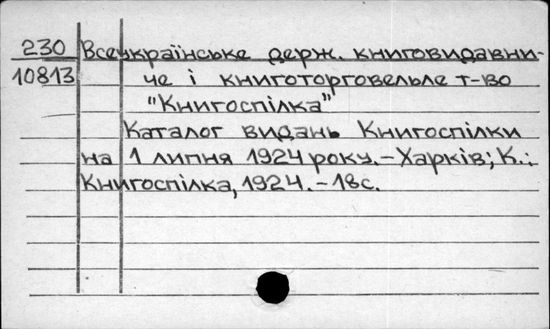 230 Всеукраїнське держ. книговидавни-
10813 че і книготорговельле т-во
"Книгоспілка"
Каталог видань Книгоспілки
на 1 липня 1924 року.-Харків; К.:
Книгоспілка, 1924.-18с.